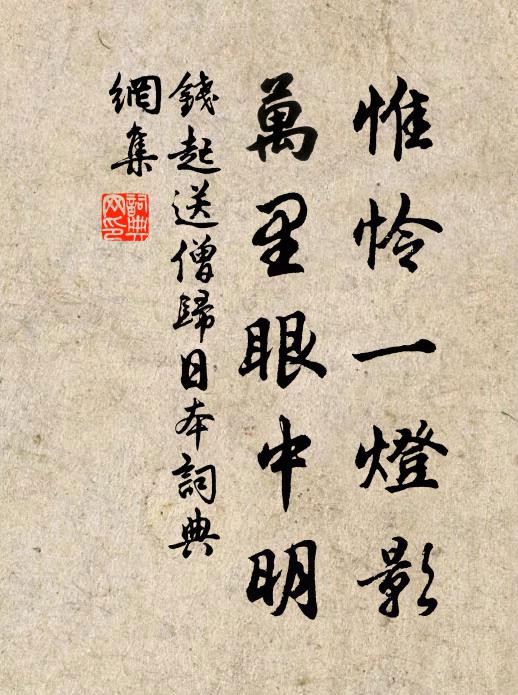 惟怜一燈影
萬里眼中明
錢起送僧歸日本詞典
網集
詞典
网印